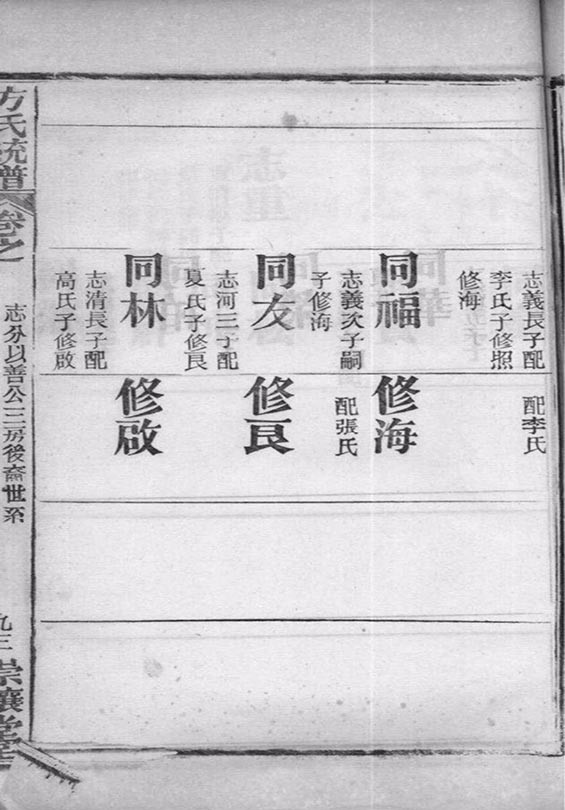 志義長子配
李氏子修照
修海
同福
志義次子嗣
子修海
同友
志河三子配
夏氏子修良
同林
志清長子配
高氏子修啟
配李氏
修海
配張氏
修良
修啟
方氏統譜
卷之一
志分以善公三房後裔世系
九三
崇讓堂